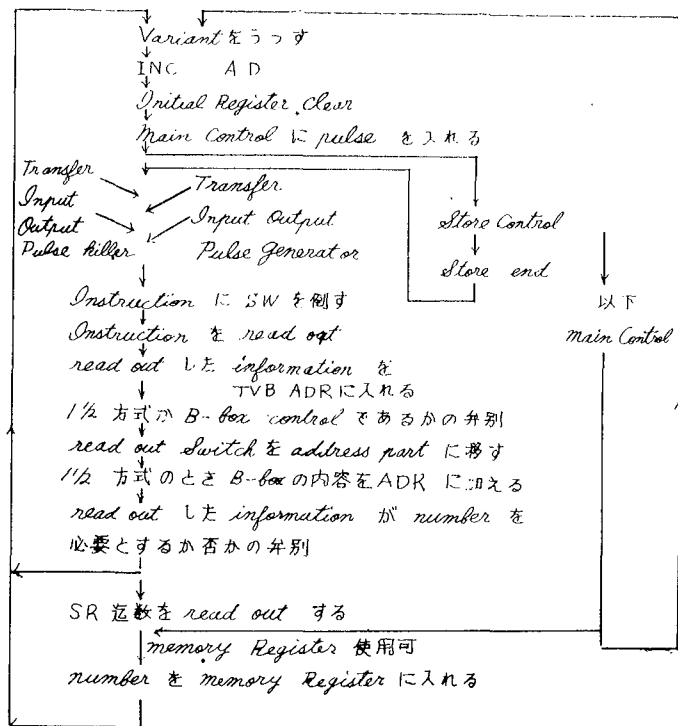 Variant をうつす
INC AD
Initial Register clear
Main Control に pulse を入れる
Transfer
Input
Output
Pulse killer
Transfer
Input Output
Pulse Generator
Store Control
Store end
以下
main Control
Instruction に SW を倒す
Instruction を read out
read out した information を
TVB ADRに入れる
1 1/2 方式か B-box control であるかの弁別
read out Switch を address part に移す
1 1/2 方式のとき B-box の内容を ADR に加える
read out した information が number を
必要とするか否かの弁別
SR 迄数を read out する
memory Register 使用可
number を memory Register に入れる